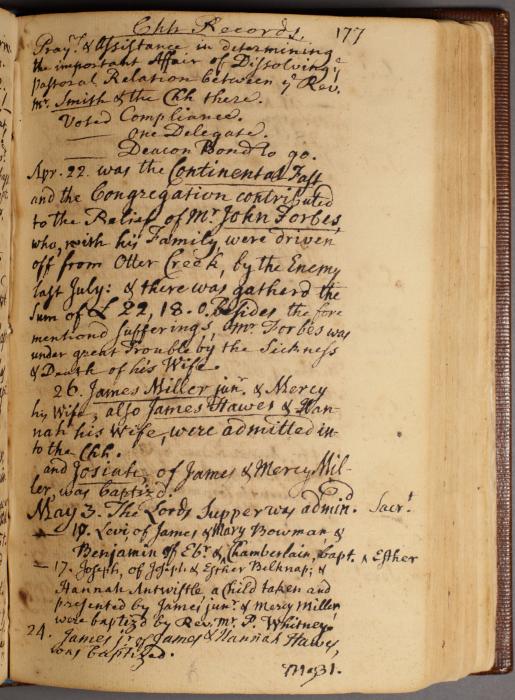 Chh Records. 177
Pray.rs & Assistance in determining
the important Affair of Dissolving ye
pastoral Relation between ye Rev.
Mr. Smith & the Chh there.
Voted Compliance.
—— one Delegate.
—— Deacon Bond to go.
Apr. 22. was the Continental Fast
and the Congregation contributed
to the Relief of Mr. John Forbes,
who, with his Family, were driven
off from Otter Creek, by the Enemy
last July: & there was gatherd the
Sum of £ 22, 18. 0. Besides the fore
mentiond Sufferings, Mr. Forbes was
under great Trouble by the Sickness
& Death of his Wife.
26. James Miller junr. & Mercy
his Wife, also James Hawes & Han-
nah his Wife, were admitted in-
to the Chh.
and Josiah, of James & Mercy Mil-
ler, was baptizd.
May 3. The Lords Supper was admind. Sacrt
— 10. Levi of James & Mary Bowman &
Benjamin of Ebr. & Chamberlain, bapt. ^ Esther
— 17. Joseph, of Joseph & Esther Belknap; &
Hannah Antwistle, a Child taken and
presented by James junr. & Mercy Miller
were baptizd by Rev. Mr. P. Whitney.
24. James, jr of James & Hannah Hawes,
was baptized.
May 31.